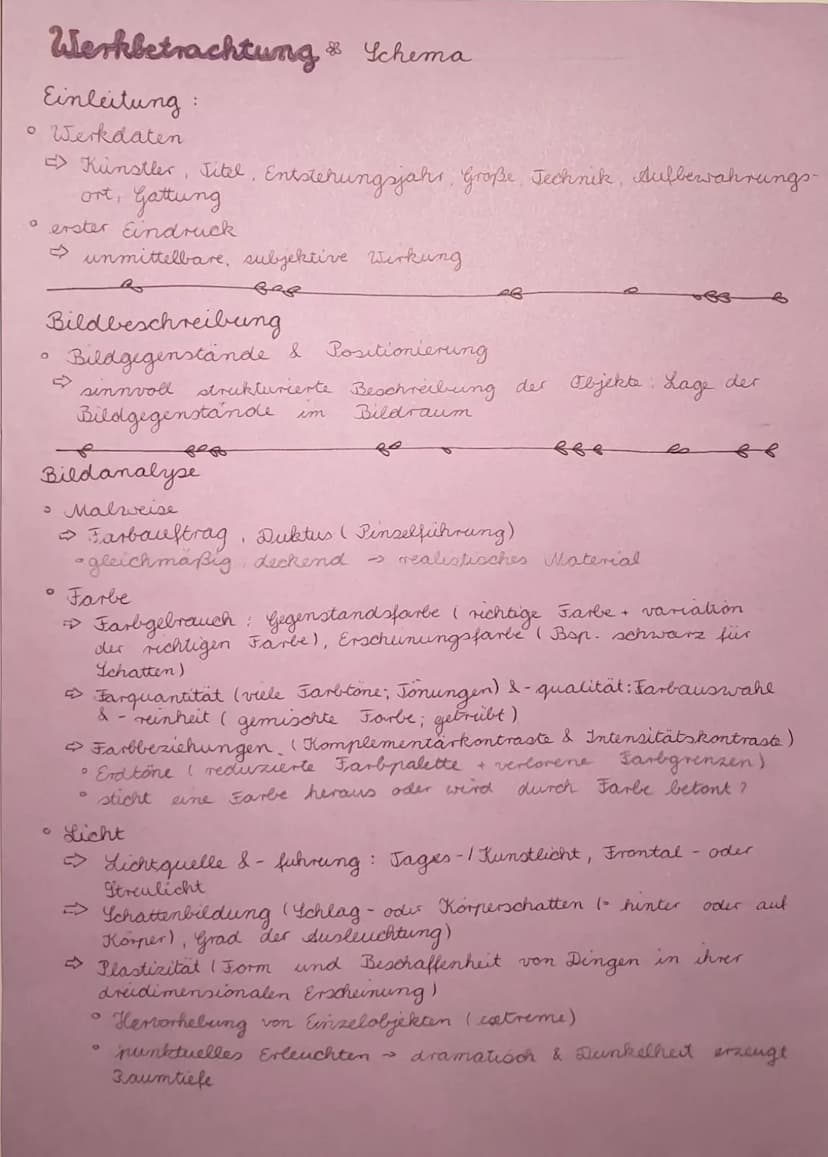 Werkbetrachtung Schema
Einleitung :
° Werkdaten
⇨ Künstler, Titel, Entstehungsjahr, Größe, Technik, Aufbewahrungs-
ort, Gattung
° erster Eindruck
⇨ unmittelbare, subjektive Wirkung
Bildbeschreibung
° Bildgegenstände & Positionierung
⇨ sinnvoll strukturierte Beschreibung der Objekte: Lage der
Bildgegenstände im Bildraum
Bildanalyse
° Malweise
⇨ Farbauftrag, Duktus (Pinselführung)
° gleichmäßig, deckend → realistisches Material
° Farbe
⇨ Farbgebrauch : Gegenstandsfarbe (richtige Farbe + variation
der richtigen Farbe), Erscheinungsfarbe (Bsp. schwarz für
Schatten)
⇨ Farquantität (viele Farbtöne; Tönungen) & -qualität: Farbauswahl
& -reinheit (gemischte Farbe; getrübt)
⇨ Farbbeziehungen. (Komplementärkontraste & Intensitätskontraste)
° Erdtöne (reduzierte Farbpalette + verlorene Farbgrenzen)
° sticht eine Farbe heraus oder wird durch Farbe betont?
° Licht
⇨ Lichtquelle & -fuhrung : Tages-/Kunstlicht, Frontal- oder
Streulicht
⇨ Schattenbildung (Schlag- oder Körperschatten (= hinter oder auf
Körper), Grad der Ausleuchtung)
⇨ Plastizität (Form und Beschaffenheit von Dingen in ihrer
dreidimensionalen Erscheinung)
° Hervorhebung von Einzelobjekten (extreme)
° punktuelles Erleuchten → dramatisch & Dunkelheit erzeugt
Raumtiefe